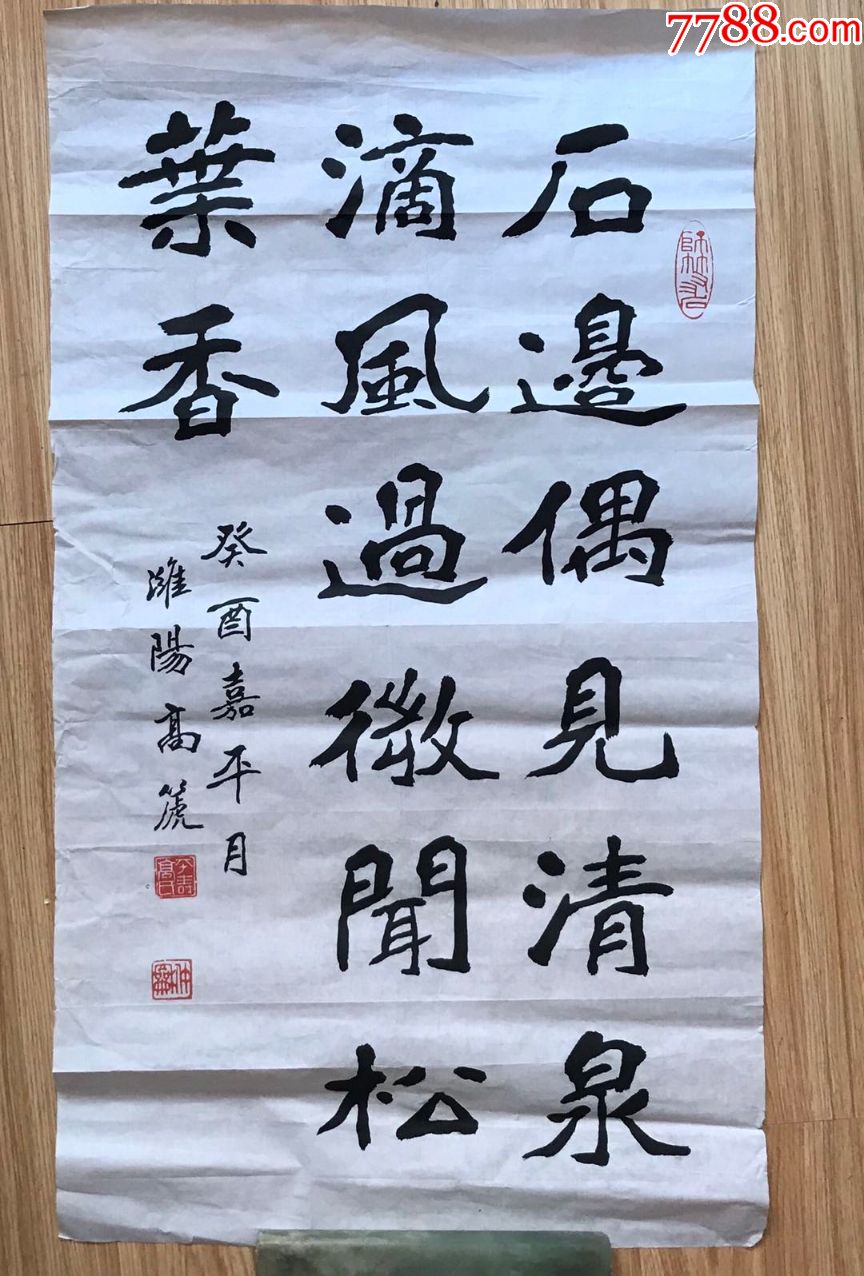 石邊偶見清泉
滴風過微聞松
葉香
癸酉嘉平月
濰陽高箎
7788.com